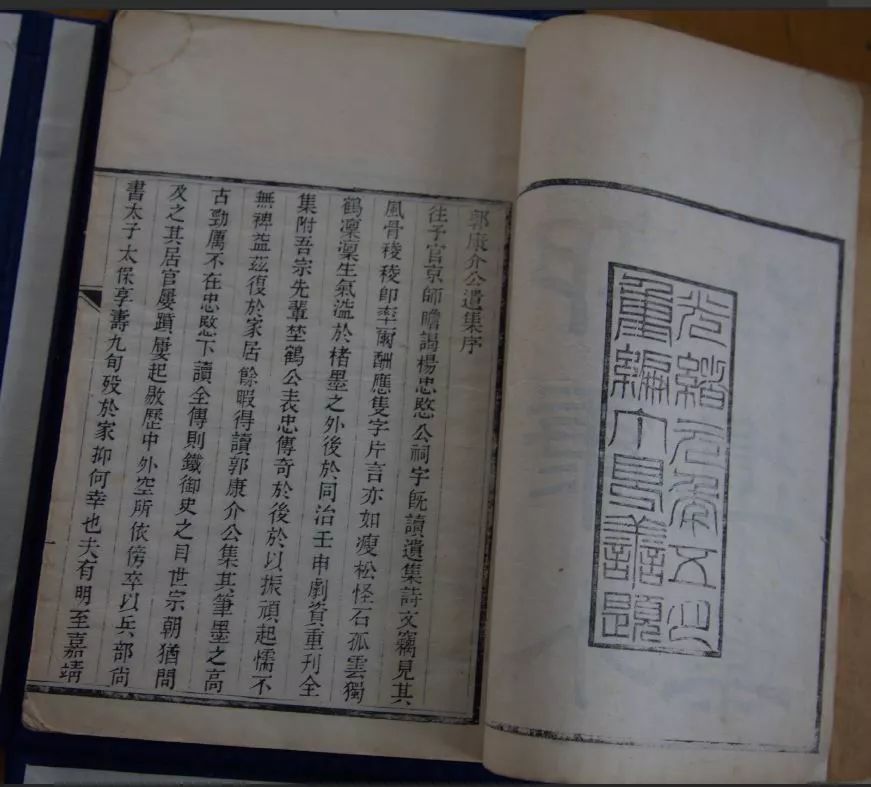 光緒元年五
編丁昌題
郭康介公遺集序
往予官京師瞻謁楊忠愍公祠宇既讀遺集詩文竊見其
風骨稜稜卽率爾酬應隻字片言亦如瘦松怪石孤雲獨
鶴凜凜生氣溢於楮墨之外後於同治壬申劇資重刊全
集附吾宗先輩埜鶴公表忠傳奇於後於以振頑起懦不
無裨益茲復於家居餘暇得讀郭康介公集其筆墨之高
古勁厲不在忠愍下讀全傳則鐵御史之目世宗朝猶問
及之其居官屢躓屢起敭歷中外空所依傍卒以兵部尙
書太子太保享壽九旬歿於家抑何幸也夫有明至嘉靖